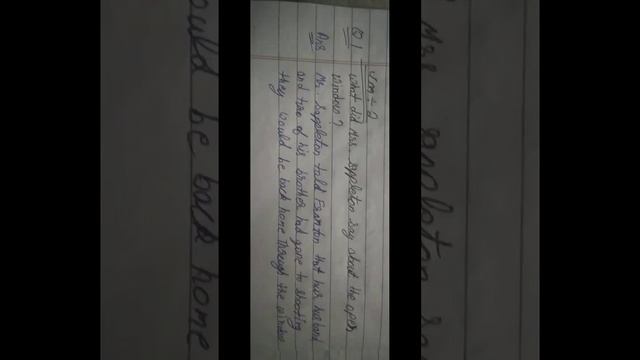 Jm - 2
Q 1 What did Mrs. sappleton say about the open
window?
Ans Mr. sappleton told Framton that her husband
and two of his brother had gone to shooting
they would be back home through the window